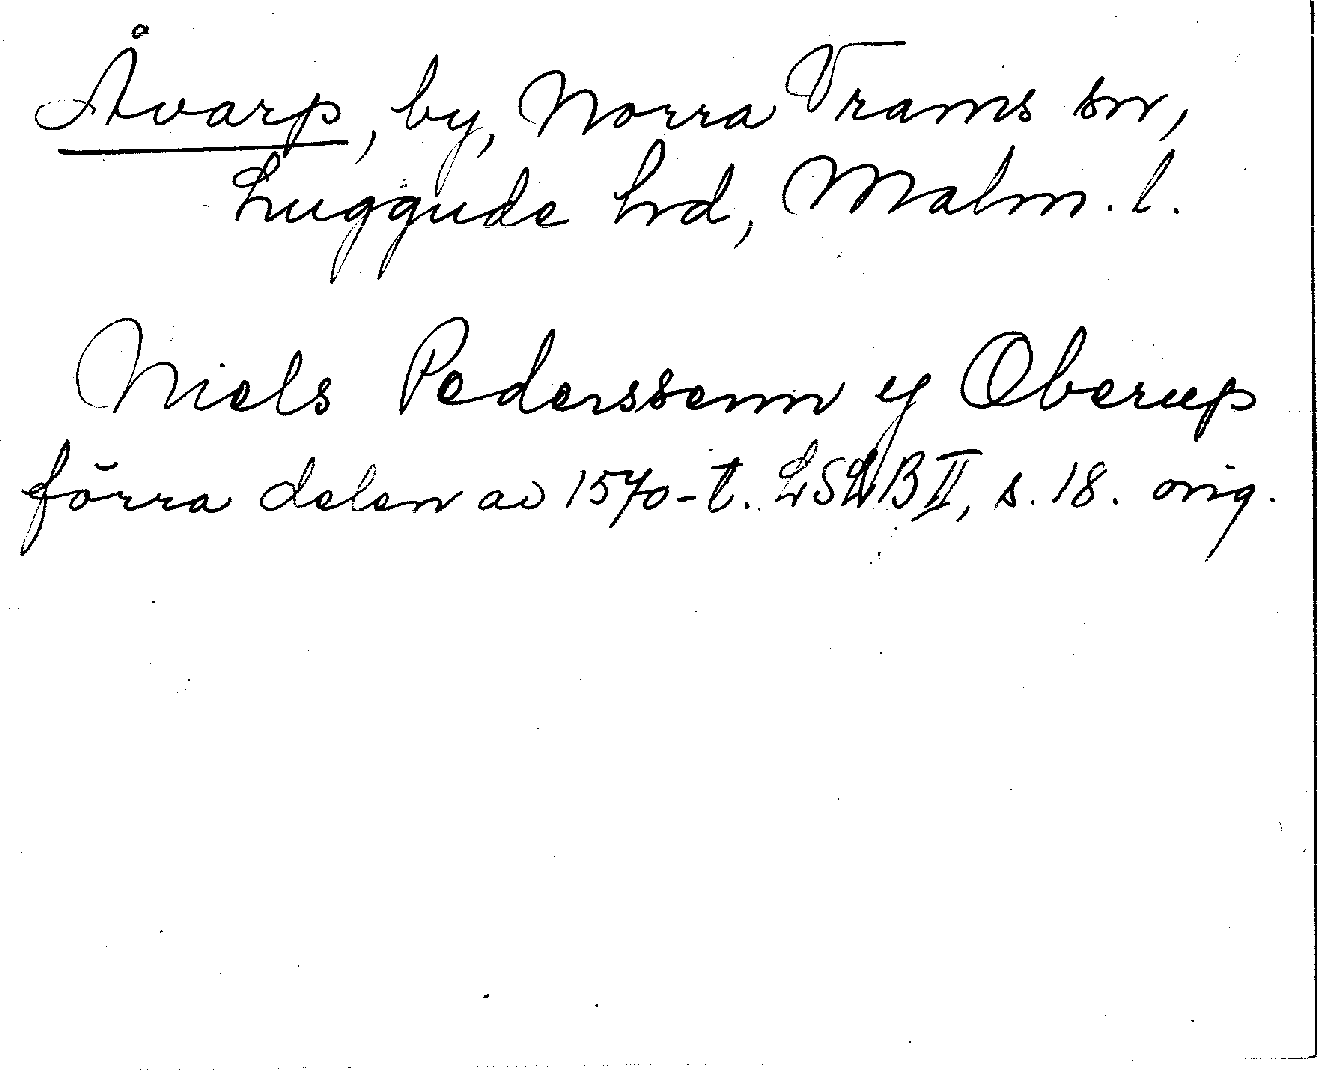 Åvarp, by, Norra Vrams sn,
Luggude hrd, Malm. l.
Niels Pederssenn y Oberup
förra delen av 1570-t. LSLB II, s. 18. orig.